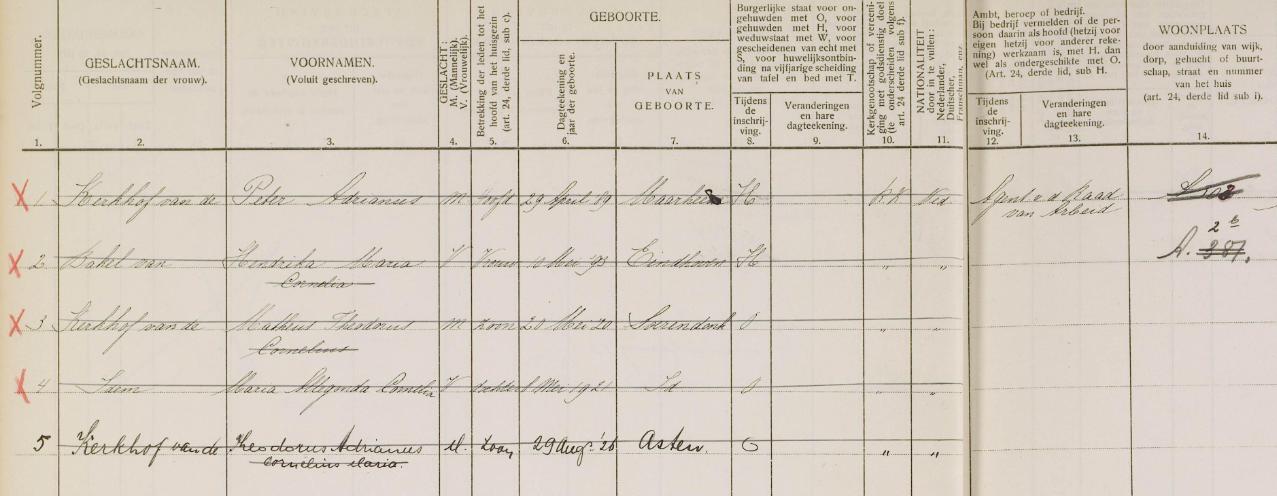 Volgnummer.
GESLACHTSNAAM.
(Geslachtsnaam der vrouw).
VOORNAMEN.
(Voluit geschreven).
GESLACHT:
M. (Mannelijk).
V. (Vrouwelijk).
Betrekking der leden tot het
hoofd van het huisgezin
(art. 24, derde lid, sub c).
GEBOORTE.
Dagteekening en
jaar der geboorte.
PLAATS
VAN
GEBOORTE.
Burgerlijke staat voor on-
gehuwden met O, voor
gehuwden met H, voor
weduwstaat met W, voor
gescheidenen van echt met
S, voor huwelijksontbin-
ding na vijfjarige scheiding
van tafel en bed met T.
Tijdens
de
inschrij-
ving.
Veranderingen
en hare
dagteekening.
Kerkgenootschap of vereeni-
ging met godsdienstig doel
(te onderscheiden volgens
art. 24 derde lid, sub f).
NATIONALITEIT
door in te vullen:
Nederlander,
Duitscher,
Franschman, enz.
Ambt, beroep of bedrijf.
Bij bedrijf vermelden of de per-
soon daarin als hoofd (hetzij voor
eigen hetzij voor anderer reke-
ning) werkzaam is, met H, dan
wel als ondergeschikte met O.
(Art. 24, derde lid, sub H.
Tijdens
de
inschrij-
ving.
Veranderingen
en hare
dagteekening.
WOONPLAATS
door aanduiding van wijk,
dorp, gehucht of buurt-
schap, straat en nummer
van het huis
(art. 24, derde lid sub i).
1. 2. 3. 4. 5. 6. 7. 8. 9. 10. 11. 12. 13. 14.
1 Kerkhof van de Peter Adrianus M hoofd 29 April 89 Maarheeze H R.K Ned Agent v. d. Raad
van Arbeid
2 Bakel van Hendrika Maria V Vrouw Mei '93 Eindhoven H „ „ A. 287. 2 b
Cornelia
3 Kerkhof van de Matheus Theodorus M zoon 20 Mei 20 Soerendonk O „ „
Cornelius
4 Idem Maria Allegonda Cornelia V dochter Mei 1921 Id O „ „
5 Kerkhof van de Theodorus Adrianus M. zoon 29 Aug. '26 Asten. O „ „
Cornelius Maria.